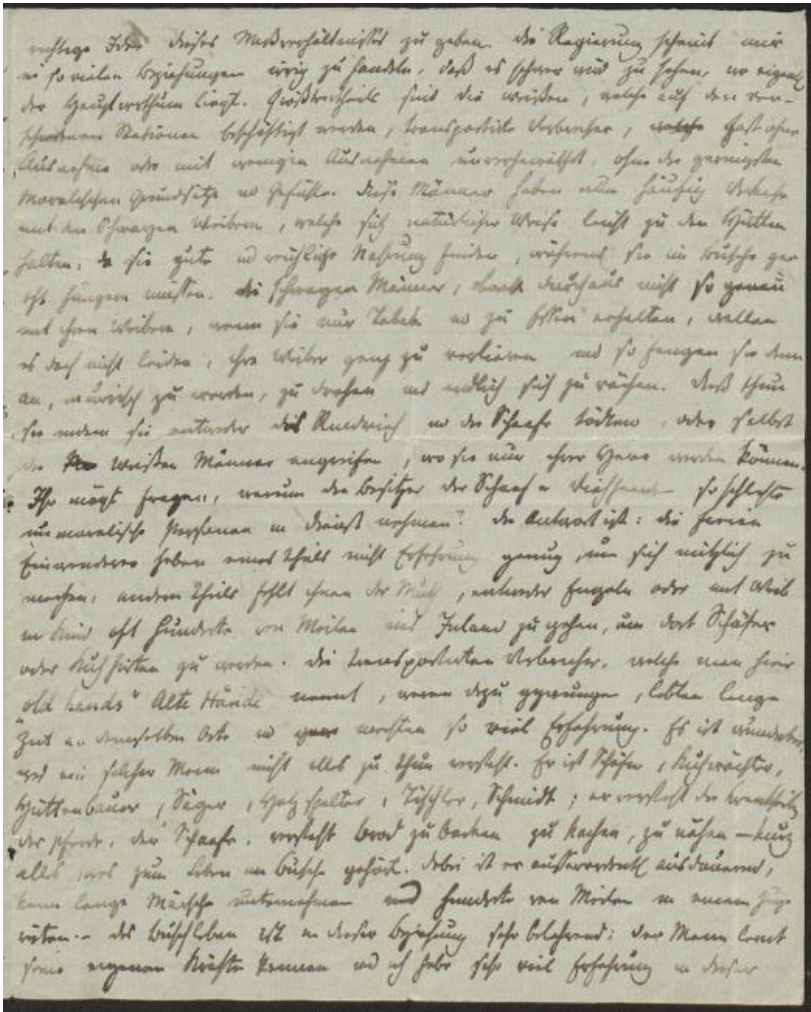 richtige Idee dieses Missverhältnisses zu geben. Die Regierung scheint mir
in so vielen Beziehungen irrig zu handeln, daß es schwer wird zu sehen, wo eigentl
der Hauptirrthum liegt. Größtentheils sind die weißen, welche auf den ver-
schiedenen Stationen beschäftigt werden, transportirte Verbrecher, fast ohne
Ausnahme oder mit wenigen Ausnahmen unverheirathet, ohne die geringsten
moralischen Grundsätze und Gefühle. Diese Männer haben nun häufig Verkehr
mit den schwarzen Weibern, welche sich natürlicher Weise leicht zu den Hütten
halten, da sie gute und reichliche Nahrung finden, während sie im Busche gar
oft hungern müssen. Die schwarzen Männer, obwohl durchaus nicht so genau
mit ihren Weibern, wenn sie nur Tabak und zu Essen erhalten, wollen
es doch nicht leiden, ihre Weiber ganz zu verlieren und so fangen sie denn
an, mürrisch zu werden, zu drohen und endlich sich zu rächen. Dieß thun
sie indem sie entweder das Rindvieh und die Schaafe tödten, oder selbst
die weißen Männer angreifen, wo sie nur ihrer Herr werden können.
Ihr mögt fragen, warum die Besitzer der Schaaf u Viehheerden so schlechte
unmoralische Personen in Dienst nehmen? Die Antwort ist: die freien
Einwanderer haben eines Theils nicht Erfahrung genug, um sich nützlich zu
machen, andern Theils fehlt ihnen der Muth, entweder einzeln oder mit Weib
u Kind oft hunderte von Meilen ins Inland zu gehen, um dort Schäfer
oder Kuhhirten zu werden. Die transportirten Verbrecher, welche man hier
"old hands" Alte Hände nennt, waren dazu gezwungen, lebten lange
Zeit an demselben Orte und machten so viel Erfahrung. Es ist wunderbar,
was ein solcher Mann nicht alles zu thun versteht. Er ist Schäfer, Kuhwächter,
Hüttenbauer, Säger, Holzspalter, Tischler, Schmidt; er versteht die Krankheiten
der Pferde, der Schaafe, versteht Brod zu backen zu kochen, zu nähen — kurz
alles was zum Leben im Busche gehört. Dabei ist er ausserordentl ausdauernd,
kann lange Märsche unternehmen und hunderte von Meilen in einem Zuge
reiten. – Das Buschleben ist in dieser Beziehung sehr belehrend: der Mann lernt
seine eigenen Kräfte kennen und ich habe sehr viel Erfahrung in dieser